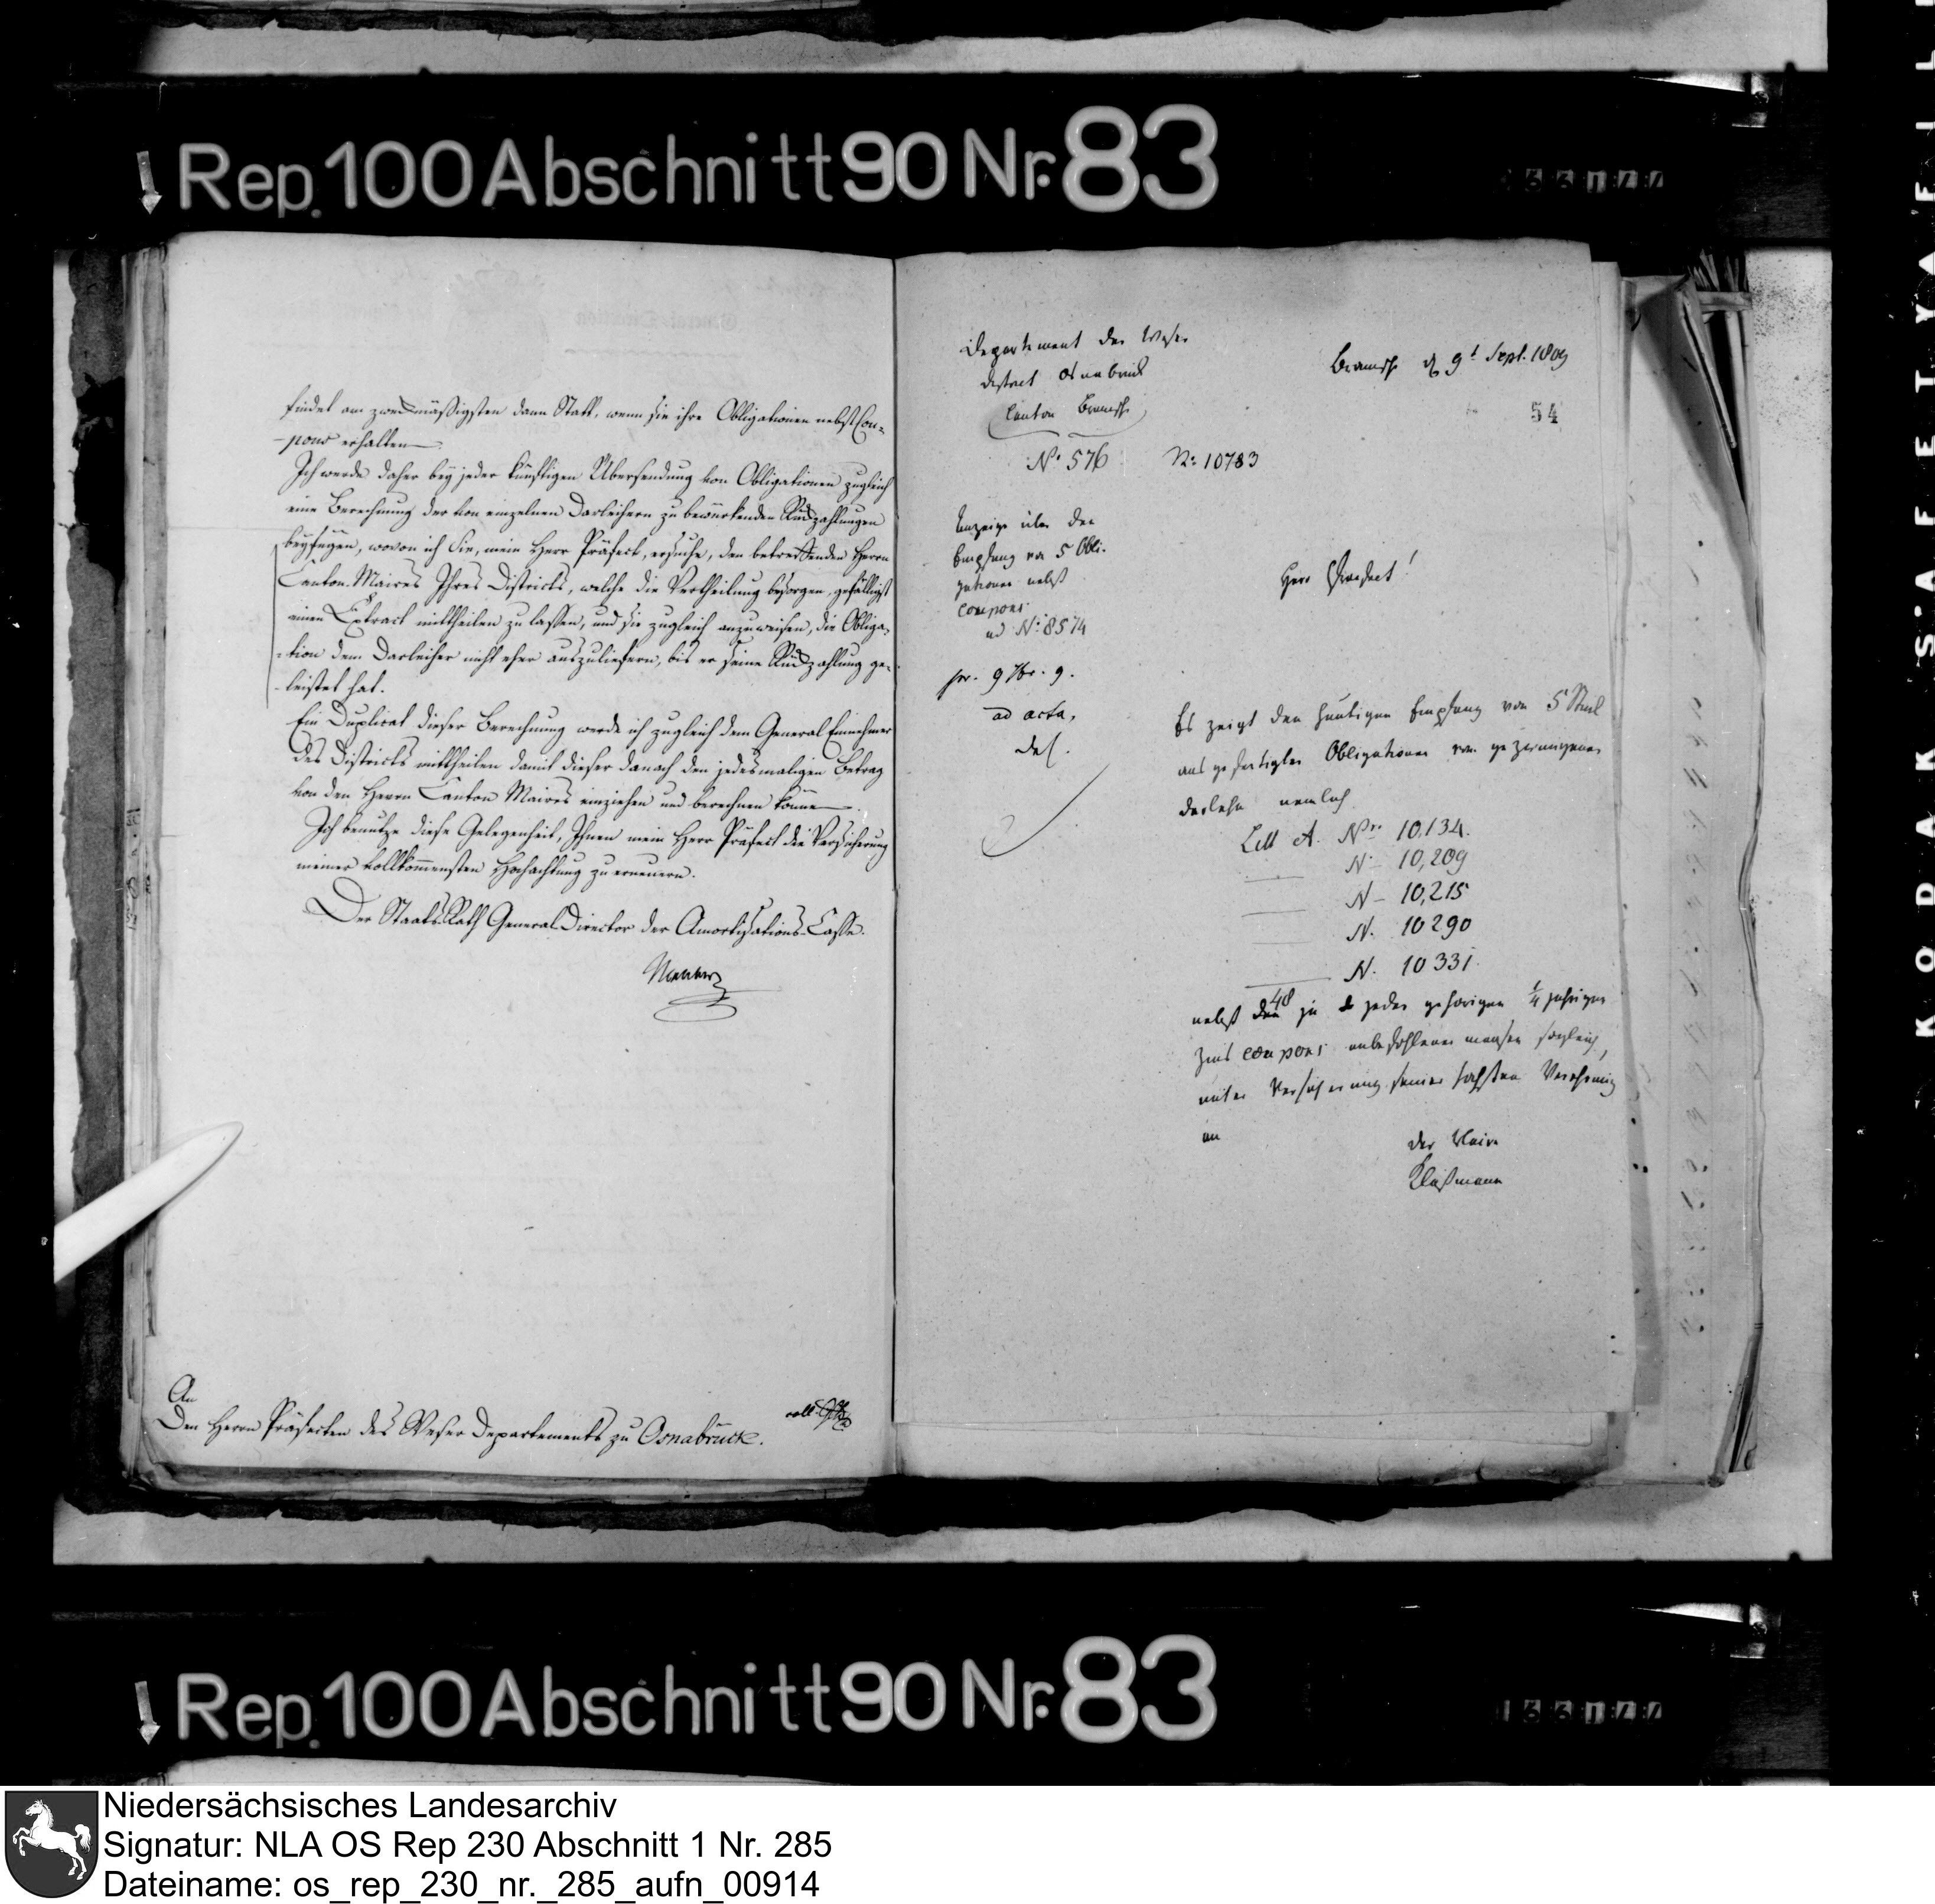 Rep. 100 Abschnitt 90 Nr. 83
findet am zweckmäßigsten dann Statt, wenn sie ihre Obligationen nebst Cou-
-pons erhalten.
Ich werde daher bey jeder künftigen Übersendung von Obligationen zugleich
eine Berechnung der von einzelnen Darleihern zu bewürkenden Rückzahlungen
beyfügen, wovon ich Sie, mein Herr Präfect, ersuche, den betreffenden Herrn
Canton-Maires Ihres Districts, welche die Vertheilung besorgen, gefälligst
einen Extract mittheilen zu lassen, und sie zugleich anzuweisen, die Obliga-
-tion dem Darleiher nicht eher auszuliefern, bis er seine Rückzahlung ge-
-leistet hat.
Ein Duplicat dieser Berechnung werde ich zugleich dem General Einnehmer
des Districts mittheilen damit dieser danach den jedesmaligen Betrag
von den Herrn Canton Maires einziehen und berechnen könne.
Ich benutze diese Gelegenheit, Ihnen mein Herr Präfect die Versicherung
meiner vollkommensten Hochachtung zu erneuern.
Der Staats-Rath General Director der Amortisations-Casse.
An
Den Herrn Präfecten des Weser Departements zu Osnabrück.
Departement der Weser
District Osnabrück
Canton Bramsche
No 576
No 10783
Bramsche d 9t Sept. 1809
54
Anzeige über den
Empfang von 5 Obli-
gationen nebst
coupons
ad No 8574
pr. 9 7br. 9.
ad acta,
Herr Praefect!
Es zeigt den heutigen Empfang von 5 Stück
ausgefertigter Obligationen von gezwungenen
darlehn nemlich
Litt A. Nro 10,134.
N— 10,209
N— 10,215
N. 10290
N. 10331
nebst den 48 zu jeder gehörigen 1/4 jährigen
Zins coupons anbefohlener maaßen sogleich,
unter Versicherung seiner höchsten Verehrung
an
der Maire
Klußmann
Rep. 100 Abschnitt 90 Nr. 83
KODAK SAFETY
Niedersächsisches Landesarchiv
Signatur: NLA OS Rep 230 Abschnitt 1 Nr. 285
Dateiname: os_rep_230_nr._285_aufn_00914